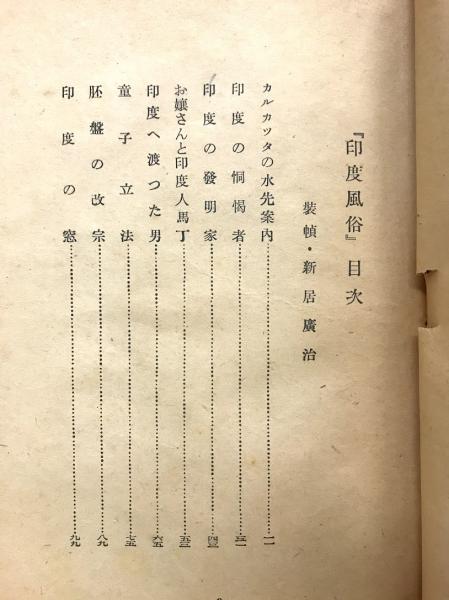 『印度風俗』目次
裝幀・新居廣治
カルカツタの水先案內……一一
印度の恫愒者……三一
印度の發明家……四三
お孃さんと印度人馬丁……五三
印度へ渡つた男……六五
童子立法……七五
胚盤の改宗……八九
印度の窓……九九